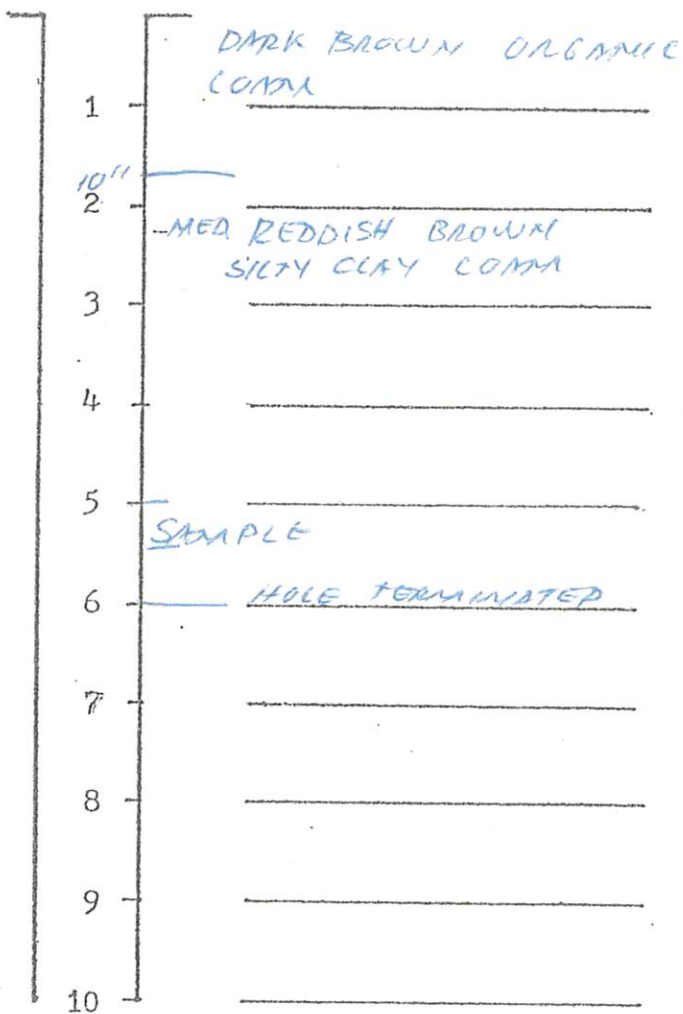 DARK BROWN ORGANIC
LOAM
1
10"
2
-MED REDDISH BROWN
SILTY CLAY LOAM
3
4
5
SAMPLE
6 HOLE TERMINATED
7
8
9
10